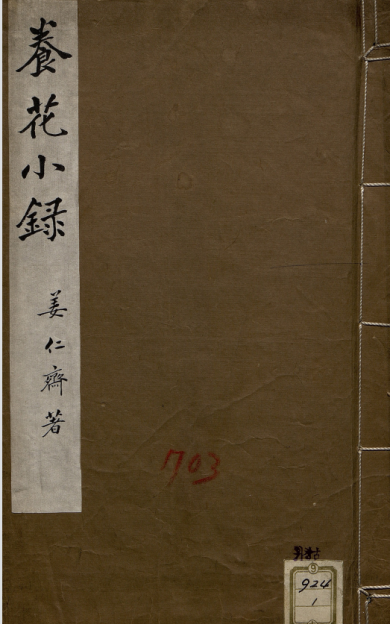 養花小録
姜仁齋著
703
924
1